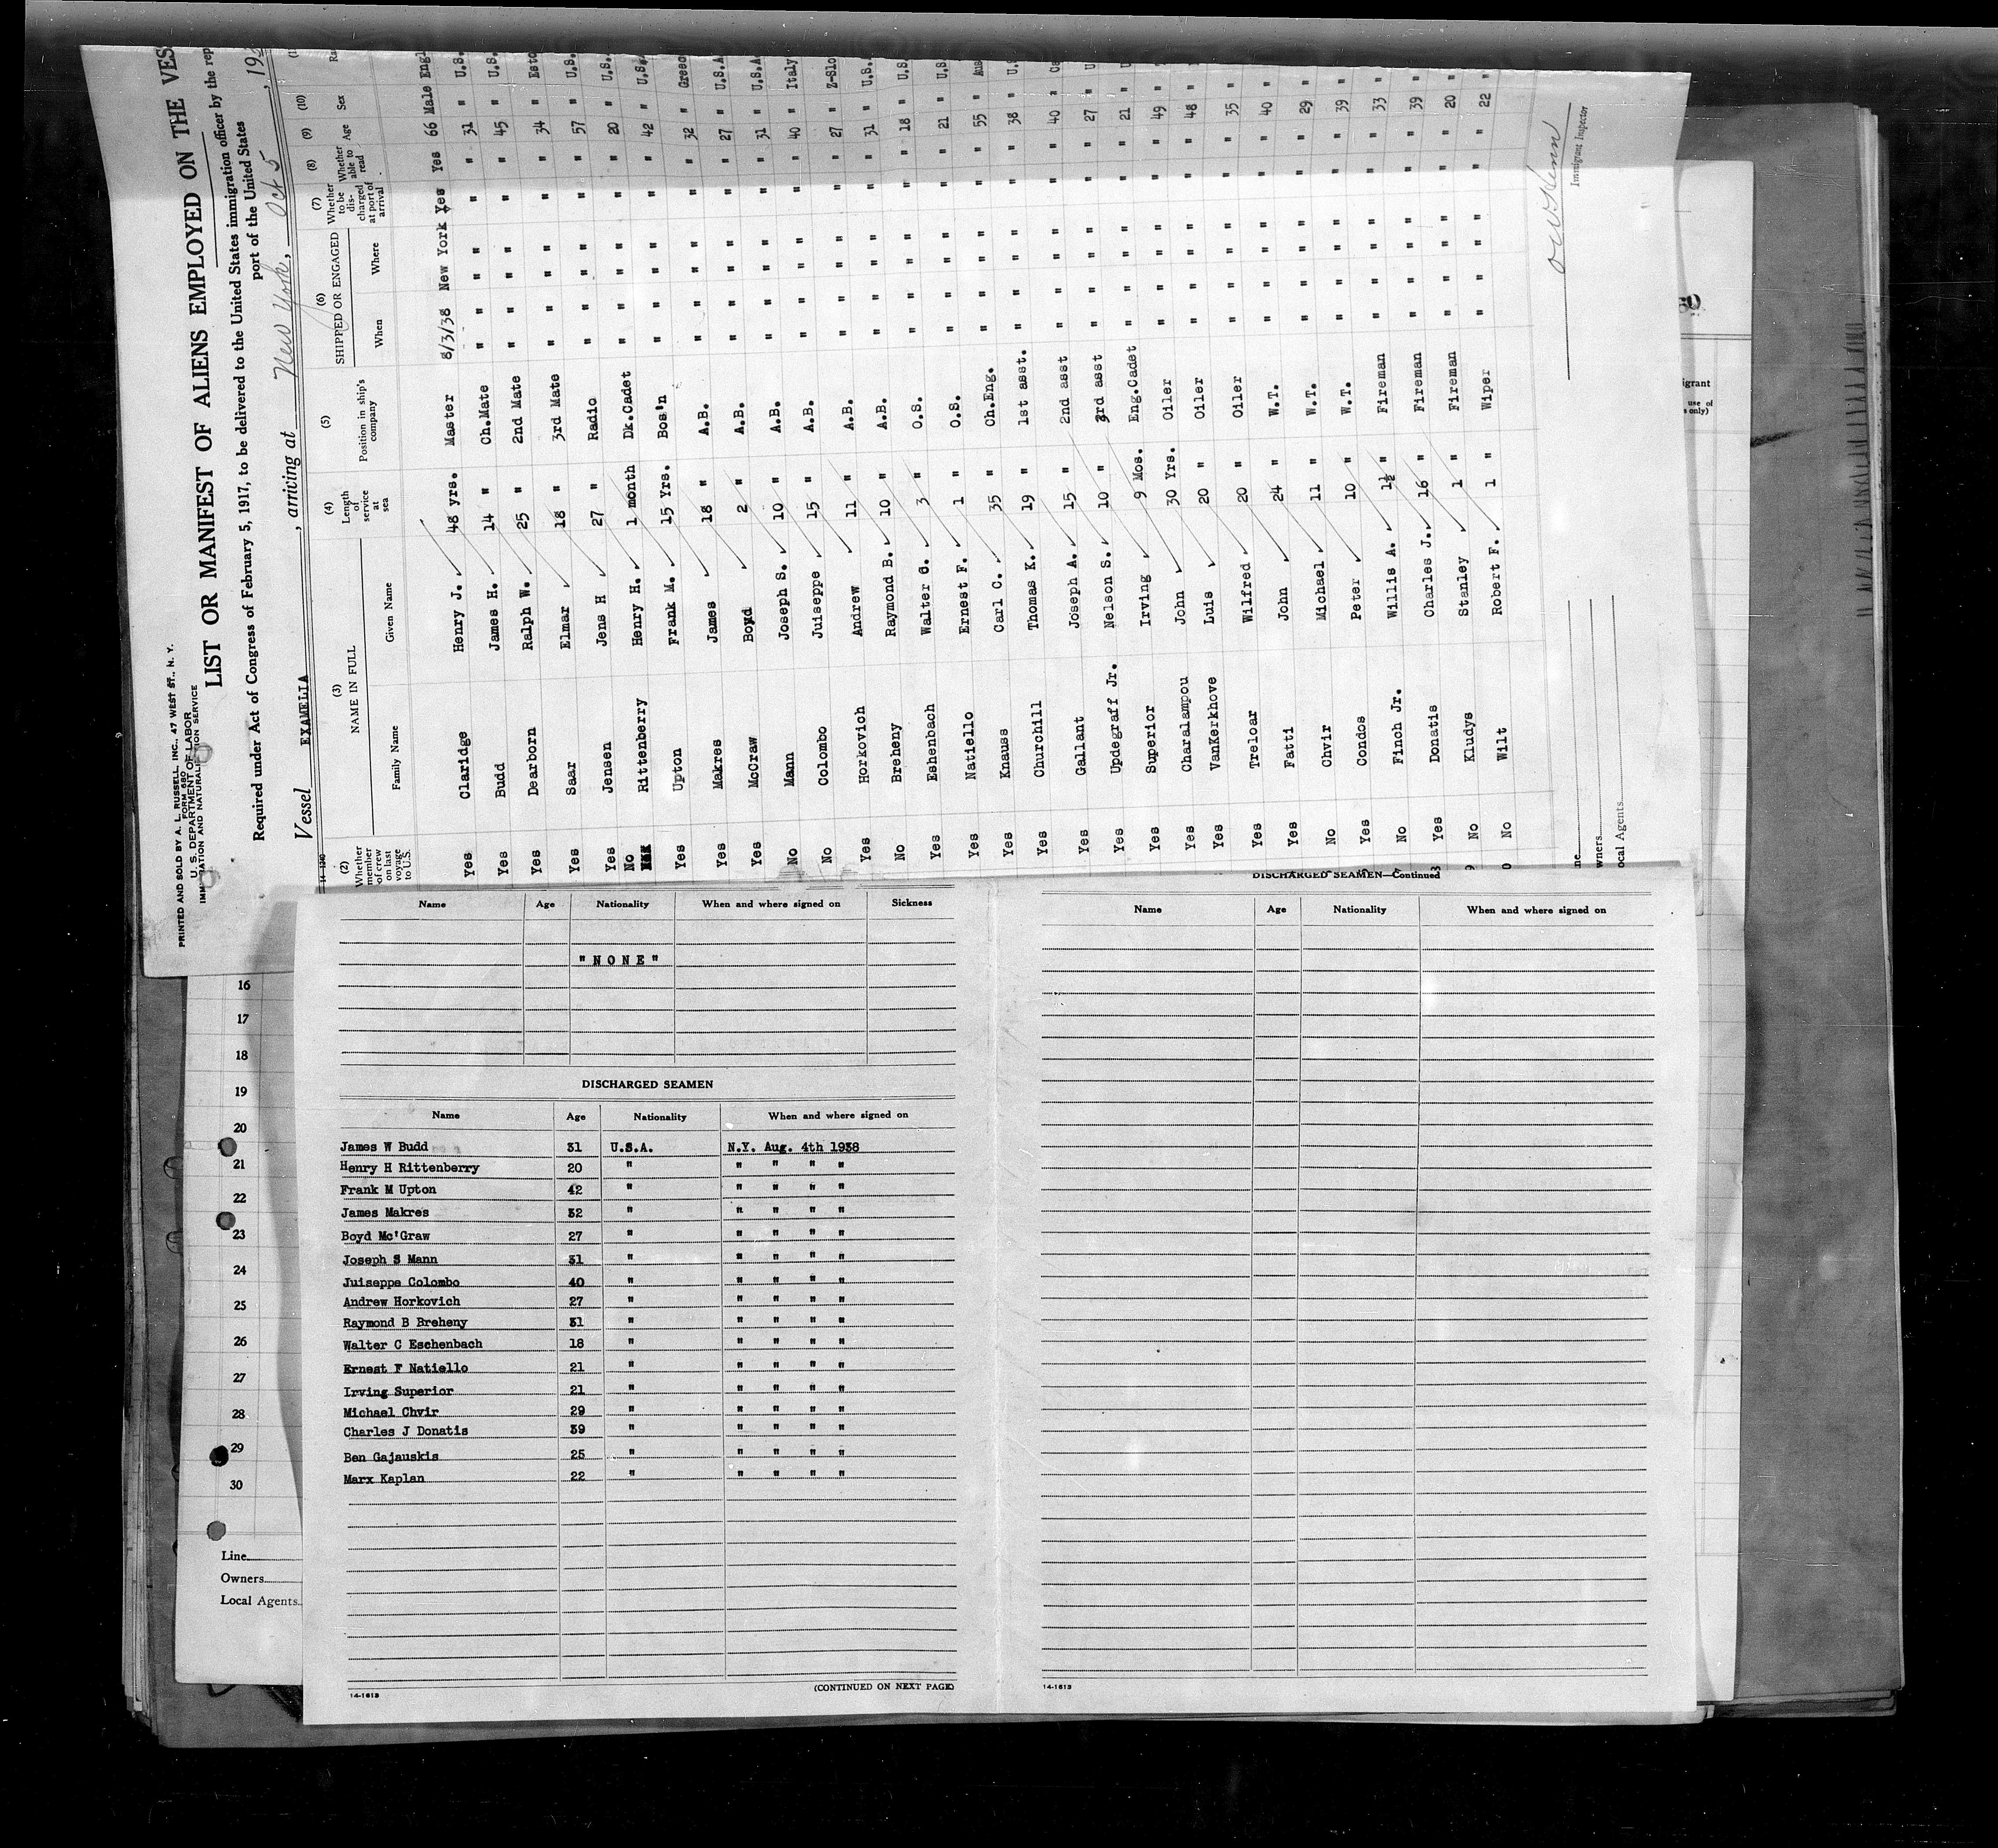 PRINTED AND SOLD BY A. L. RUSSELL, INC., 47 WEST ST., N. Y.
FORM 680
U. S. DEPARTMENT OF LABOR
IMMIGRATION AND NATURALIZATION SERVICE
LIST OR MANIFEST OF ALIENS EMPLOYED ON THE VES
Required under Act of Congress of February 5, 1917, to be delivered to the United States immigration officer by the rep
port of the United States
Vessel EXAMELIA, arriving at New York, Oct 5, 19
14-1240
(2) Whether member of crew on last voyage to U.S.
(3) NAME IN FULL
Family Name Given Name
(4) Length of service at sea
(5) Position in ship's company
(6) SHIPPED OR ENGAGED
When Where
(7) Whether to be discharged at port of arrival
(8) Whether able to read
(9) Age
(10) Sex
Yes Claridge Henry J. 48 yrs. Master 8/3/38 New York Yes Yes 66 Male Engl
Yes Budd James H. 14 " Ch.Mate " " " " " 31 " U.S.
Yes Dearborn Ralph W. 25 " 2nd Mate " " " " " 45 " U.S.
Yes Saar Elmar 18 " 3rd Mate " " " " " 34 " Esto
Yes Jensen Jens H 27 " Radio " " " " " 57 " U.S.
No Rittenberry Henry H. 1 month Dk.Cadet " " " " " 20 " U.S.
Yes Upton Frank M. 15 Yrs. Bos'n " " " " " 42 " U.S.
Yes Makres James 18 " A.B. " " " " " 32 " Greec
Yes McCraw Boyd 2 " A.B. " " " " " 27 " U.S.A
No Mann Joseph S. 10 " A.B. " " " " " 31 " U.S.A
No Colombo Juiseppe 15 " A.B. " " " " " 40 " Italy
Yes Horkovich Andrew 11 " A.B. " " " " " 27 " Z-Slo
No Breheny Raymond B. 10 " A.B. " " " " " 31 " U.S.
Yes Eshenbach Walter G. 3 " O.S. " " " " " 18 " U.S.
Yes Natiello Ernest F. 1 " O.S. " " " " " 21 " U.S.
Yes Knauss Carl C. 35 " Ch.Eng. " " " " " 55 " Aus
Yes Churchill Thomas K. 19 " 1st asst. " " " " " 38 " U.S
Yes Gallant Joseph A. 15 " 2nd asst " " " " " 40 " Ca
Yes Updegraff Jr. Nelson S. 10 " 3rd asst " " " " " 27 " U
Yes Superior Irving 9 Mos. Eng.Cadet " " " " " 21 " U
Yes Charalampou John 30 Yrs. Oiler " " " " " 49 "
Yes VanKerkhove Luis 20 " Oiler " " " " " 48 "
Yes Treloar Wilfred 20 " Oiler " " " " " 35 "
Yes Fatti John 24 " W.T. " " " " " 40 "
No Chvir Michael 11 " W.T. " " " " " 29 "
Yes Condos Peter 10 " W.T. " " " " " 39 "
No Finch Jr. Willis A. 1½ " Fireman " " " " " 33 "
Yes Donatis Charles J. 16 " Fireman " " " " " 39 "
No Kludys Stanley 1 " Fireman " " " " " 20 "
No Wilt Robert F. 1 " Wiper " " " " " 22 "
Immigrant Inspector
ne
wners
ocal Agents
igrant
use of
s only)
16
17
18
19
20
21
22
23
24
25
26
27
28
29
30
Line
Owners
Local Agents
Name Age Nationality When and where signed on Sickness
"NONE"
DISCHARGED SEAMEN
Name Age Nationality When and where signed on
James W Budd 31 U.S.A. N.Y. Aug. 4th 1938
Henry H Rittenberry 20 " " " " "
Frank M Upton 42 " " " " "
James Makres 32 " " " " "
Boyd Mc'Graw 27 " " " " "
Joseph S Mann 31 " " " " "
Juiseppe Colombo 40 " " " " "
Andrew Horkovich 27 " " " " "
Raymond B Breheny 31 " " " " "
Walter C Eschenbach 18 " " " " "
Ernest F Natiello 21 " " " " "
Irving Superior 21 " " " " "
Michael Chvir 29 " " " " "
Charles J Donatis 39 " " " " "
Ben Gajauskis 25 " " " " "
Marx Kaplan 22 " " " " "
14-1613
(CONTINUED ON NEXT PAGE)
DISCHARGED SEAMEN—Continued
Name Age Nationality When and where signed on
14-1613